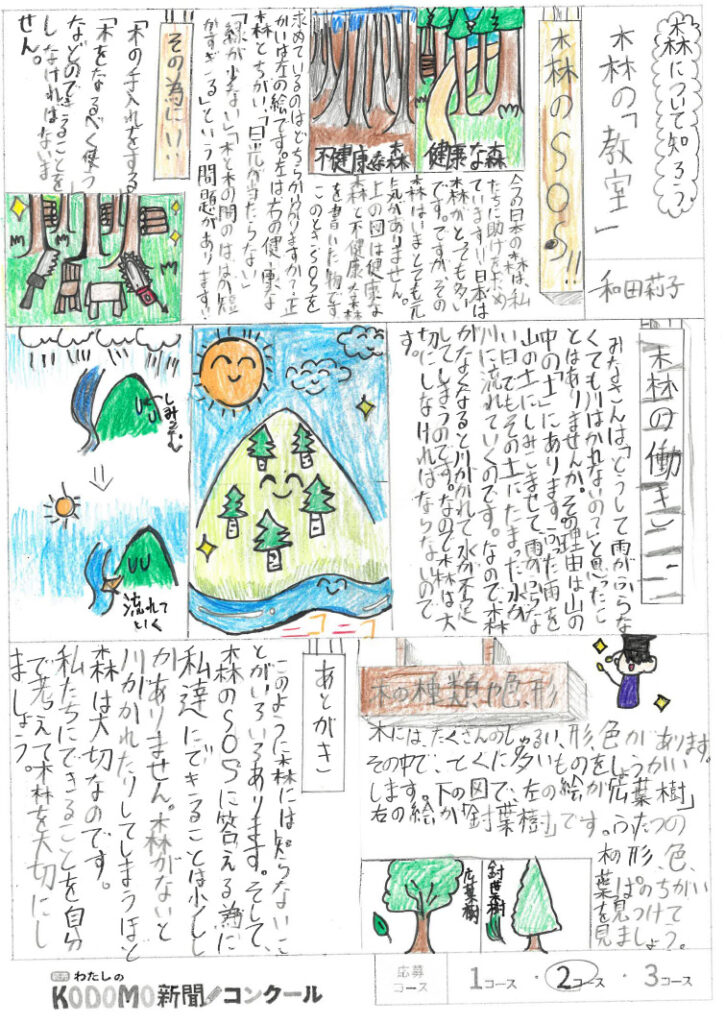 森について知ろう。
木林の「教室」
和田莉子
木林のSOS!!
健康な森
不健康な森
今の日本の森は、私
たちに助けをもとめ
ています!!日本は
森がとっても多い
です。ですが、その
森はいまとても元
気がありません。
上の図は健康な
森と不健康な森
を書いた物です。
このときSOSを
求めているのはどちらかわかりますか?正
かいは左の絵です。左は右の健康な
森とちがい、「日光が当たらない」
「緑が少ない」「木と木の間のはばが短
かすぎる」という問題があります!!
その為に!!!
「木の手入れをする」
「木をなるべく使う」
などのできることを
しなければなりま
せん。
木林の働き
みなさんは「どうして雨がふらな
くても川はかれないの?」と思ったこ
とはありませんか。その理由は山の
中の土」にあります。ふった雨を
山の土にしみこませて、雨がふらな
い日でもその土にたまった水が
川に流れていくのです。なので木林
がなくなると川がかれて水が不足
してしまうのです。なので木林は大
切にしなければならないので
す。
流れて
いく
木の種類や色、形
木には、たくさんのしゅるい、形、色があります。
その中で、とくに多いものをしょうかい
します。下の図で、左の絵が「広葉樹」
右の絵が「針葉樹」です。
広葉樹
針葉樹
あとがき
このように森には知らないこ
とがいろいろあります。そして、
森のSOSに答える為に
私達へにできることは少しし
かありません。森がないと
川がかれたりしてしまうほど
森は大切なのです。
私たちにできることを自分
で考えて木林を大切にし
ましょう。
わたしの
KODOMO新聞コンクール
応募
コース
1コース・2コース・3コース